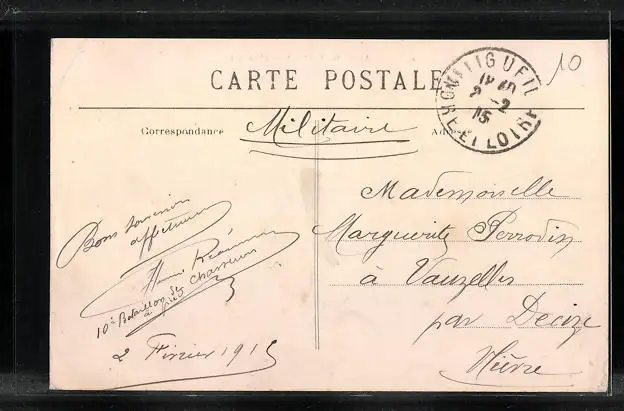 10
CARTE POSTALE
LIGUEIL
18 40
2 - 2
15
INDRE ET LOIRE
Correspondance
Militaire
Adresse
Mademoiselle
Marguerite Perrodin
à Vauzelles
par Decize
Nièvre
Bons souvenirs
affectueux
Henri
10e Bataillon de
Chasseurs
à pied
2 Février 1915